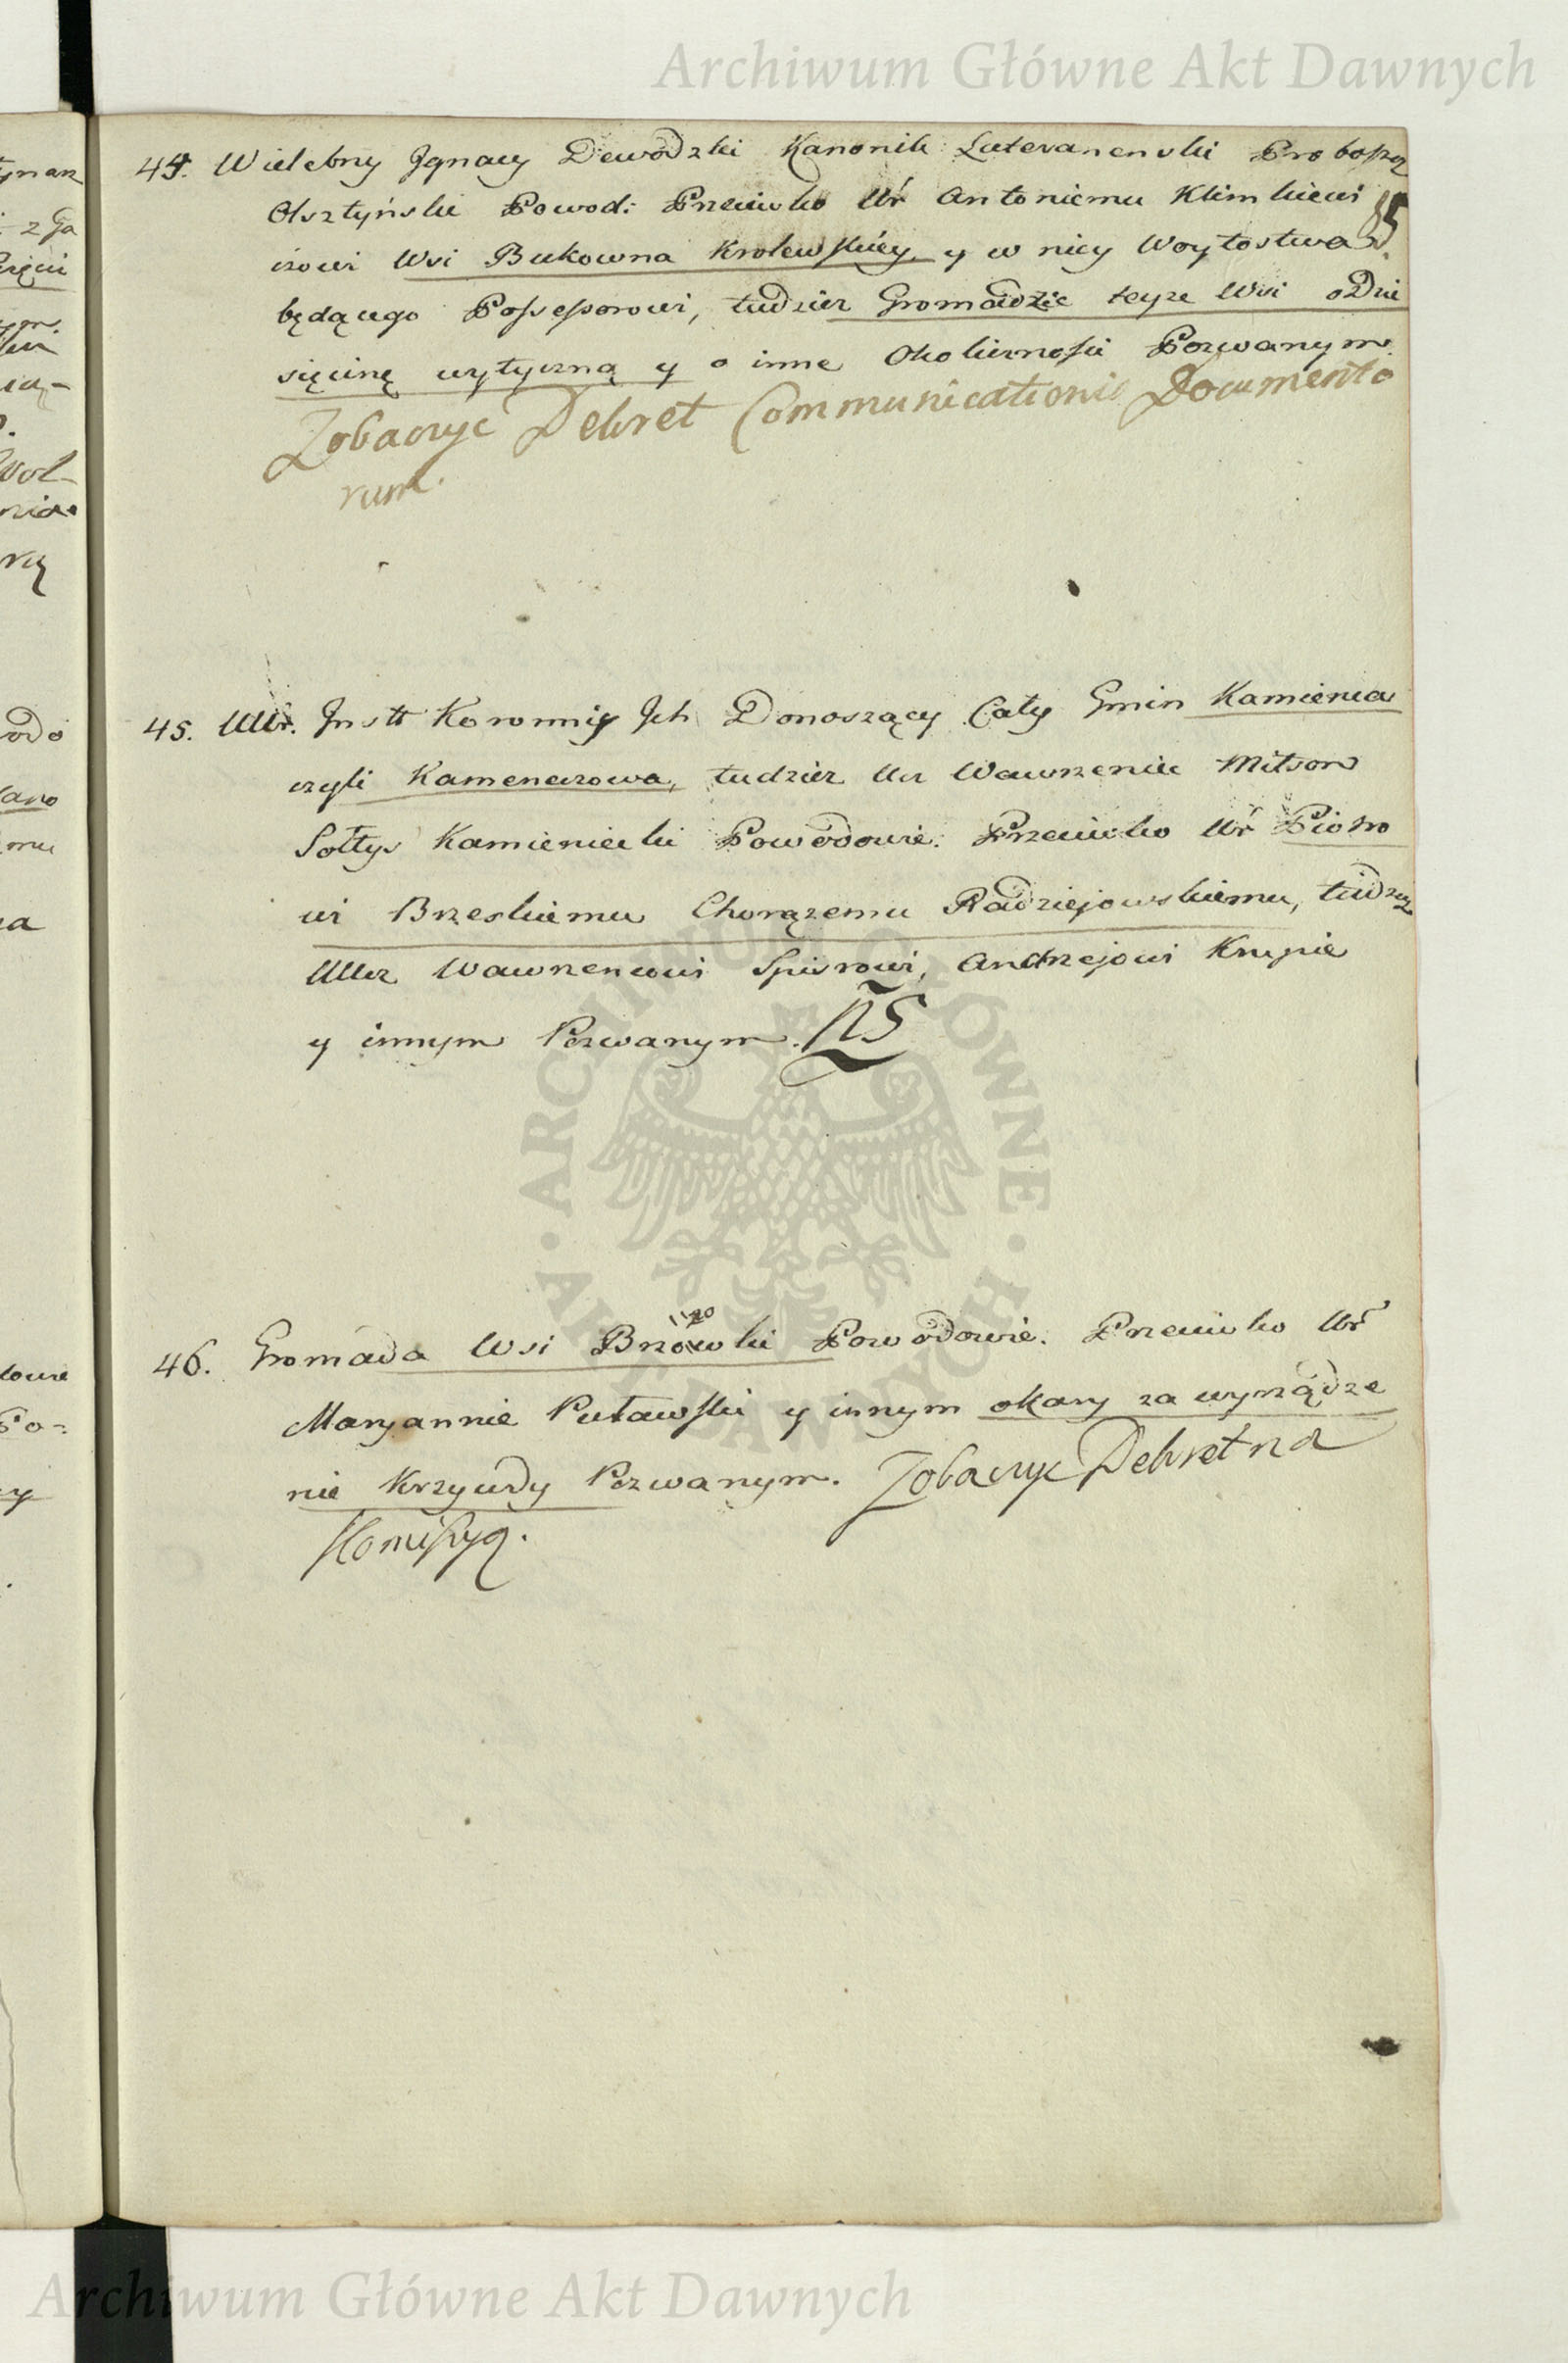 Archiwum Główne Akt Dawnych
44. Wielebny Jgnacy Dewodzki Kanonik Lateranenski Probosz
Olsztyński Powod: Przeciwko Ur Antoniemu Klimkiewi
85
czowi Wsi Bukowna Krolewskiey, y w niey Woytostwa
będącego Possessorowi, tudzież Gromadzie teyże Wsi o Dzie
sięcinę wytyczną y o inne Okoliczności Pozwanym.
Zobaczyc Dekret Communicationis Documento
rum.
45. UUr. Jnstt Koronny Jch Donoszący Cały Gmin Kamienia
czyli Kamenczowa, tudzież Ucz Wawrzeniec Mitson
Sołtys Kamieniecki Powodowie: Przeciwko Ur Piotro
wi Brzeskiemu Chorązemu Radziejowskiemu, tudzież
UUcz Wawrzencowi Spisrowi, Andrzejowi Krupie
y innym Pozwanym. NS
46. Gromada Wsi Brzowki Powodowie: Przeciwko Ur
Maryannie Puławski y innym o kary za wyrządze
nie Krzywdy Pozwanym. Zobaczyc Dekret na
Komissyą.
ARCHIWUM GŁÓWNE · AKT DAWNYCH ·
Archiwum Główne Akt Dawnych